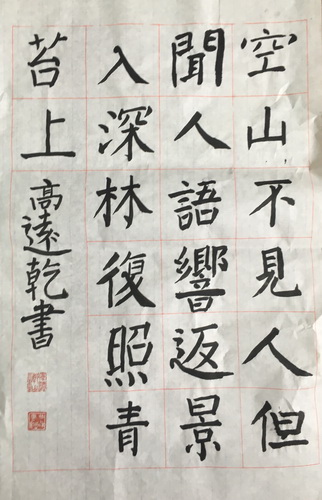 空山不見人但
聞人語響返景
入深林復照青
苔上
高遠乾書